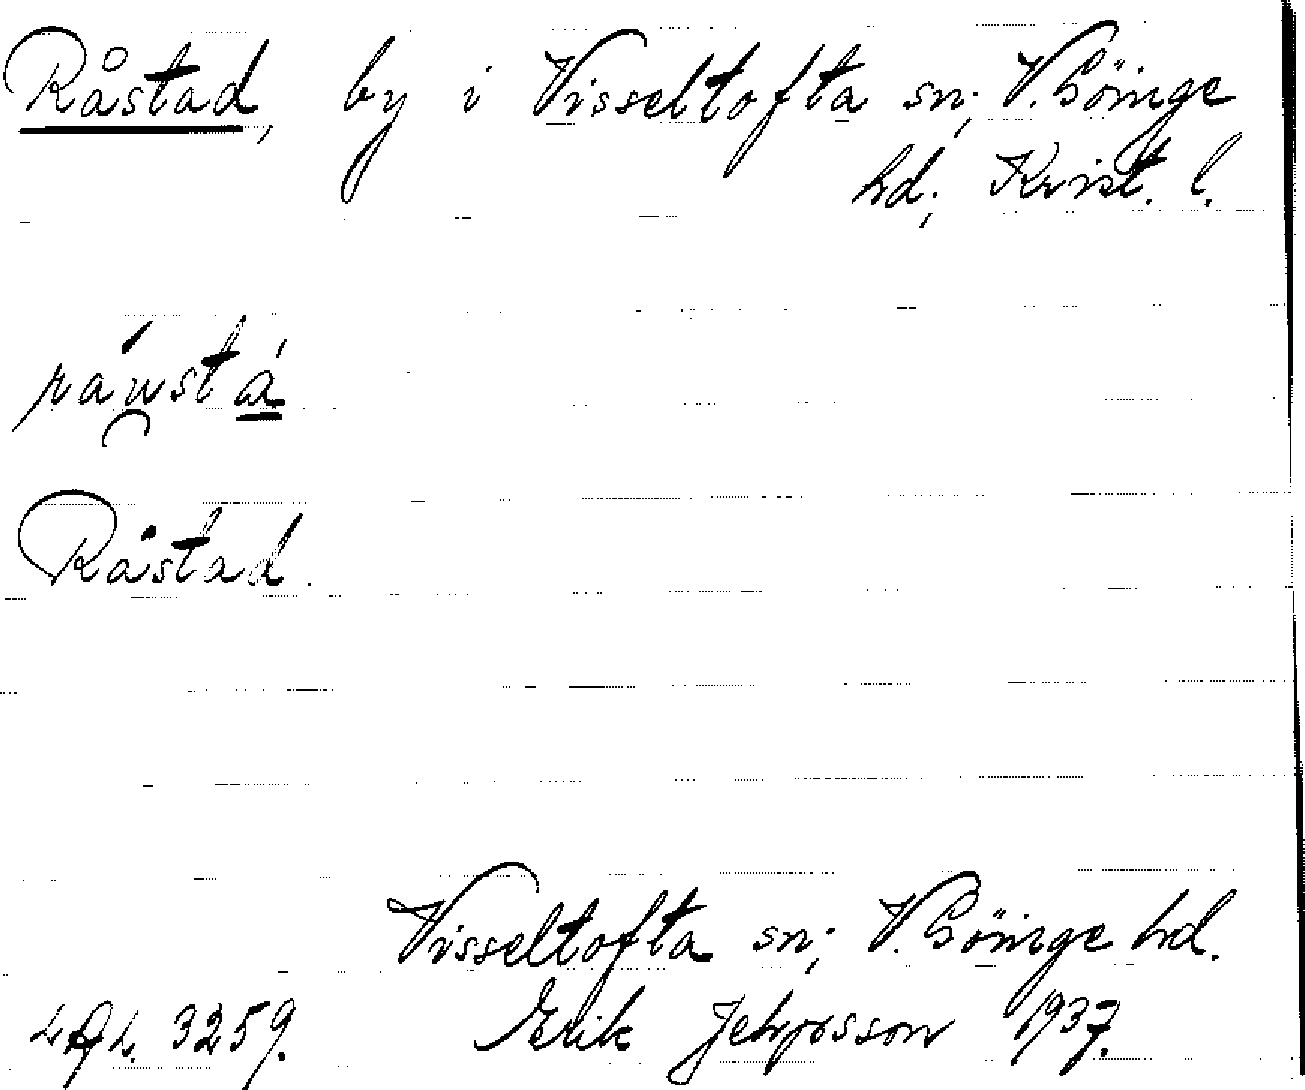 Råstad, by i Visseltofta sn; V. Göinge
hd; Krist. l.
ráu̯stà
Råstad.
Visseltofta sn; V. Göinge hd.
3259. Erik 1937.